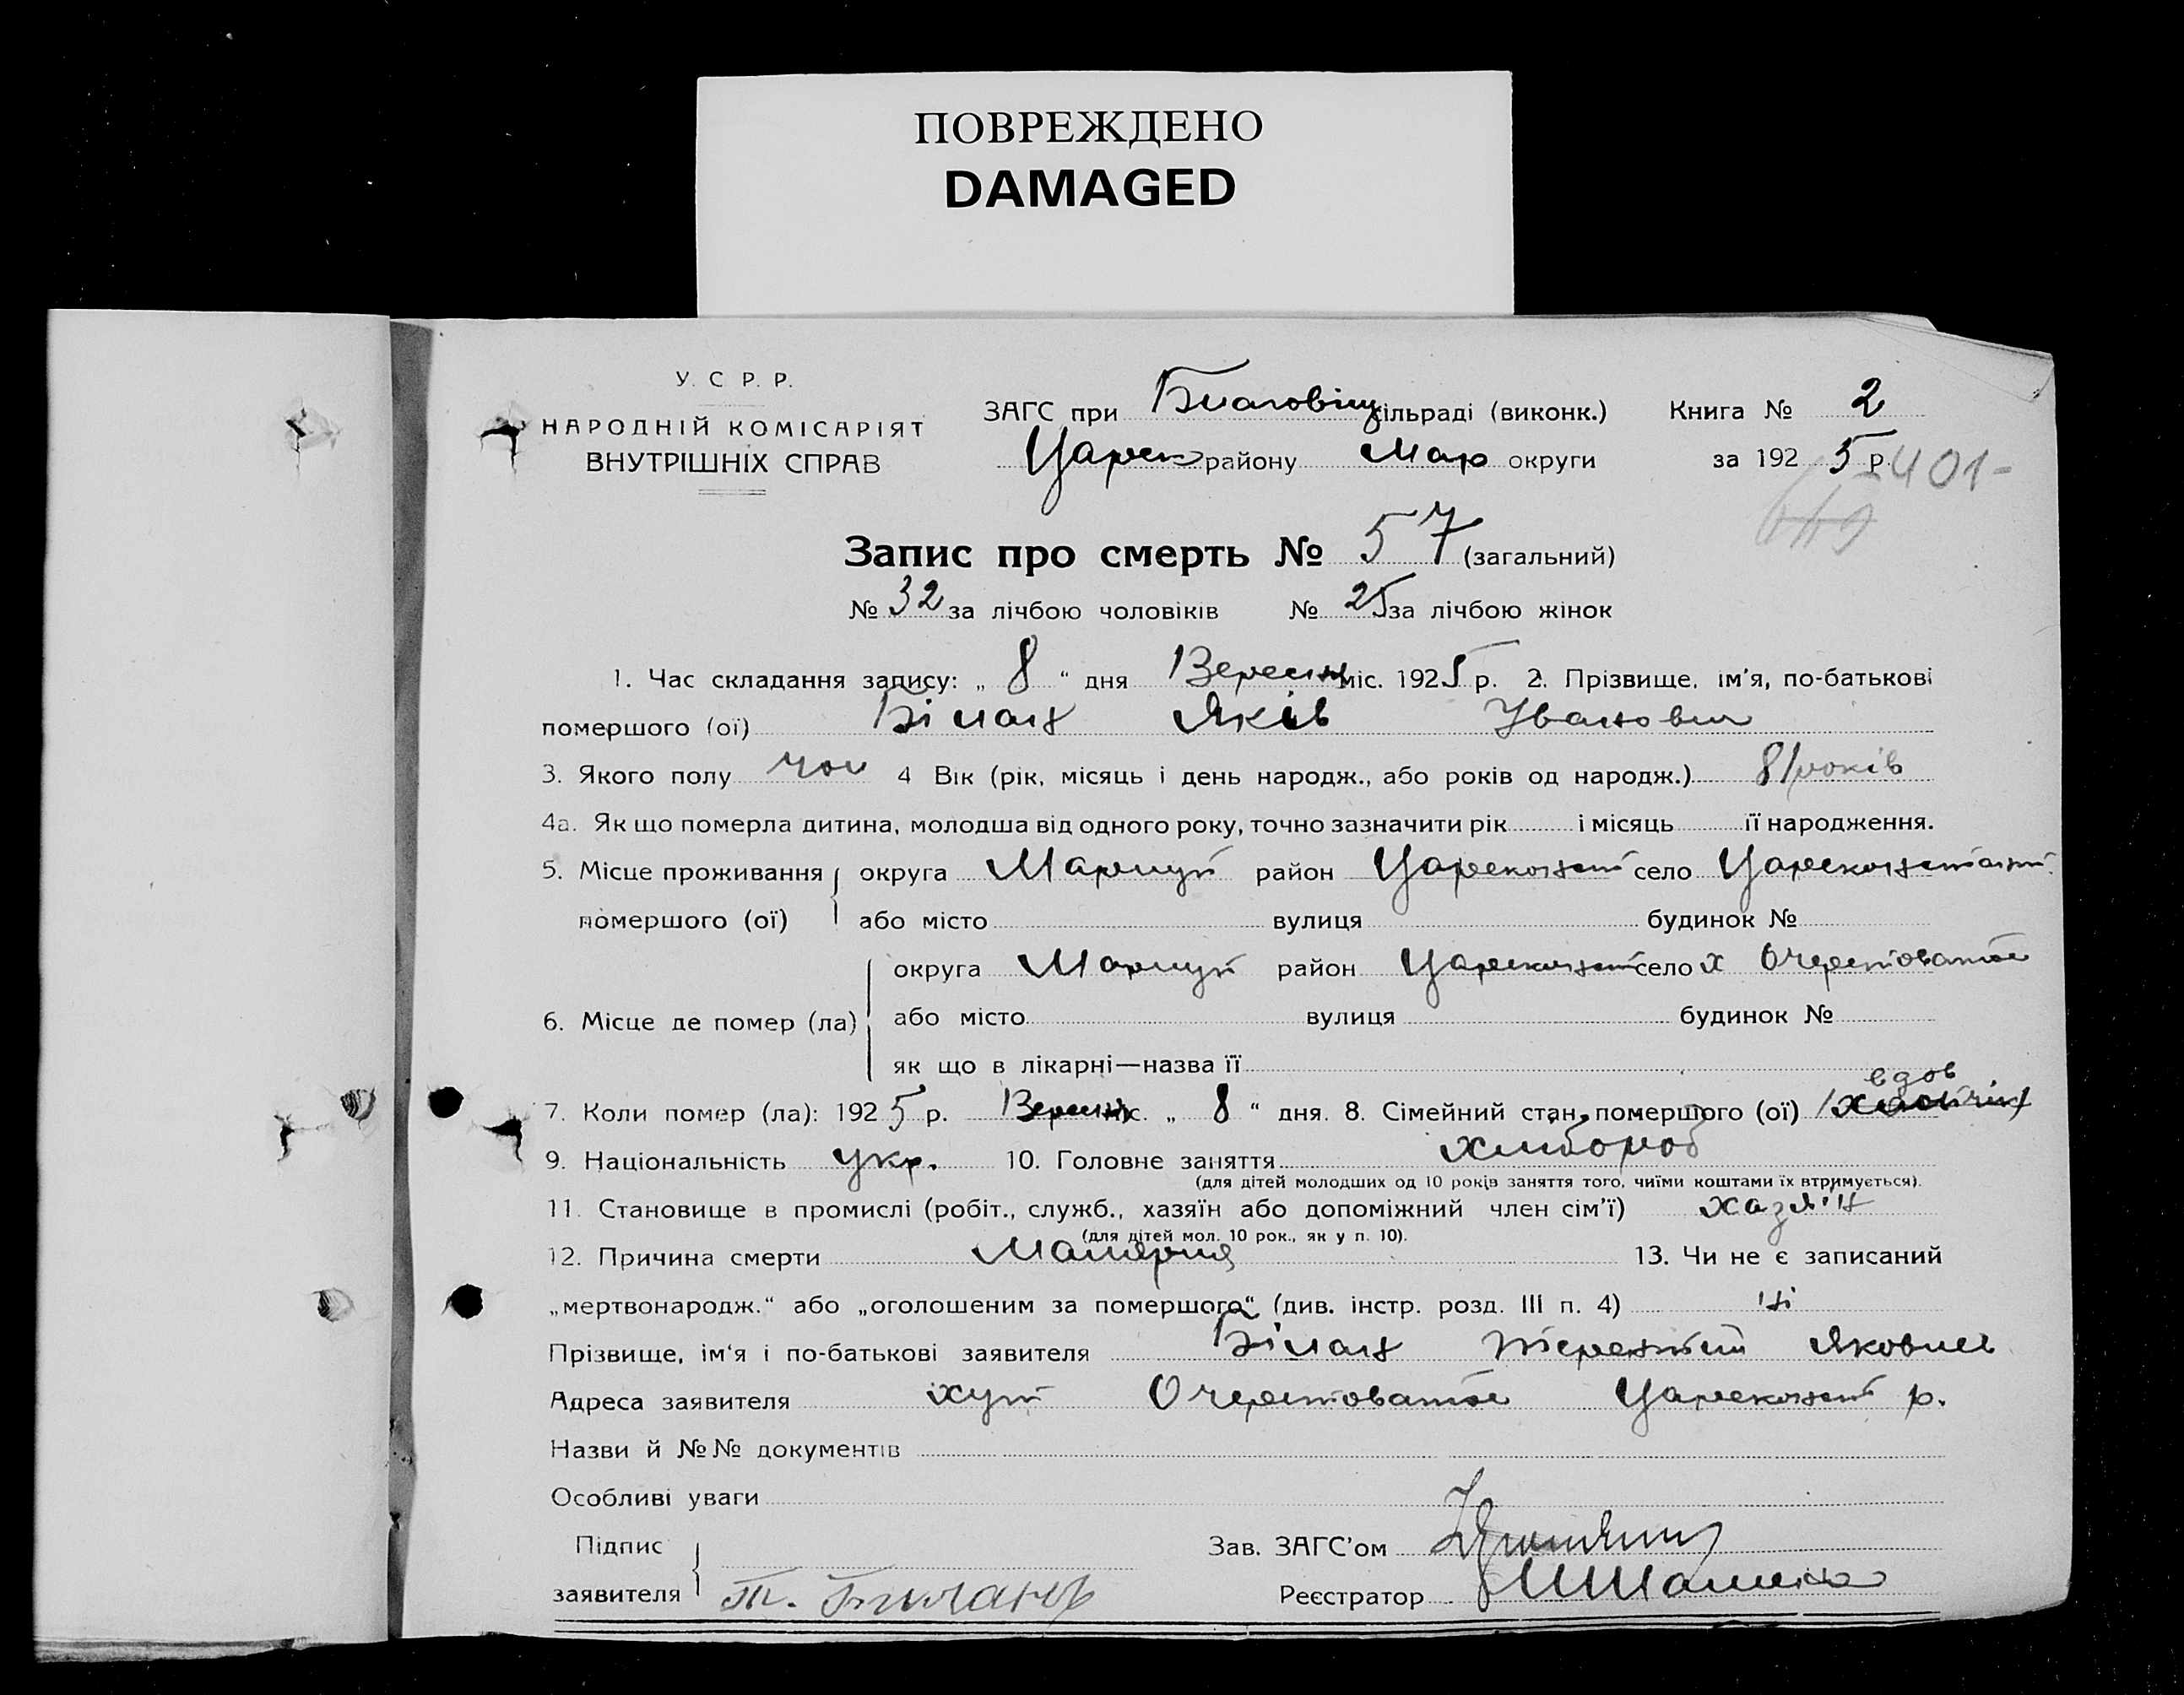 ПОВРЕЖДЕНО
DAMAGED
У. С. Р. Р.
НАРОДНІЙ КОМІСАРІЯТ
ВНУТРІШНІХ СПРАВ
ЗАГС при Благовіщ сільраді (виконк.) Книга № 2
Царек району Мар округи за 1925 р. 401-
Запис про смерть № 57 (загальний)
№ 32 за лічбою чоловіків № 25 за лічбою жінок
1. Час складання запису: „ 8 “ дня Вересня міс. 1925 р. 2. Прізвище, ім'я, по-батькові
помершого (ої) Білан Яків Іванович
3. Якого полу чол 4 Вік (рік, місяць і день народж., або років од народж.) 81 років
4а. Як що померла дитина, молодша від одного року, точно зазначити рік і місяць її народження.
5. Місце проживання округа Маріуп район Цареконст село Цареконстант.
помершого (ої) або місто вулиця будинок №
округа Маріуп район Цареконст село х Очеретоватое
6. Місце де помер (ла) або місто вулиця будинок №
як що в лікарні—назва її
вдов
7. Коли помер (ла): 1925 р. Вересня міс. „ 8 “ дня. 8. Сімейний стан помершого (ої)
9. Національність укр. 10. Головне заняття хлібороб
(для дітей молодших од 10 років заняття того, чиїми коштами їх втримується).
11. Становище в промислі (робіт., служб., хазяїн або допоміжний член сім'ї) хазяїн
(для дітей мол. 10 рок., як у п. 10).
12. Причина смерти Малярия 13. Чи не є записаний
„мертвонародж.“ або „оголошеним за помершого“ (див. інстр. розд. III п. 4) ні
Прізвище, ім'я і по-батькові заявителя Білан Терентий Яковлев
Адреса заявителя хут Очеретоватое Цареконст р.
Назви й №№ документів
Особливі уваги
Підпис Зав. ЗАГС'ом
заявителя Т. Билана Реєстратор